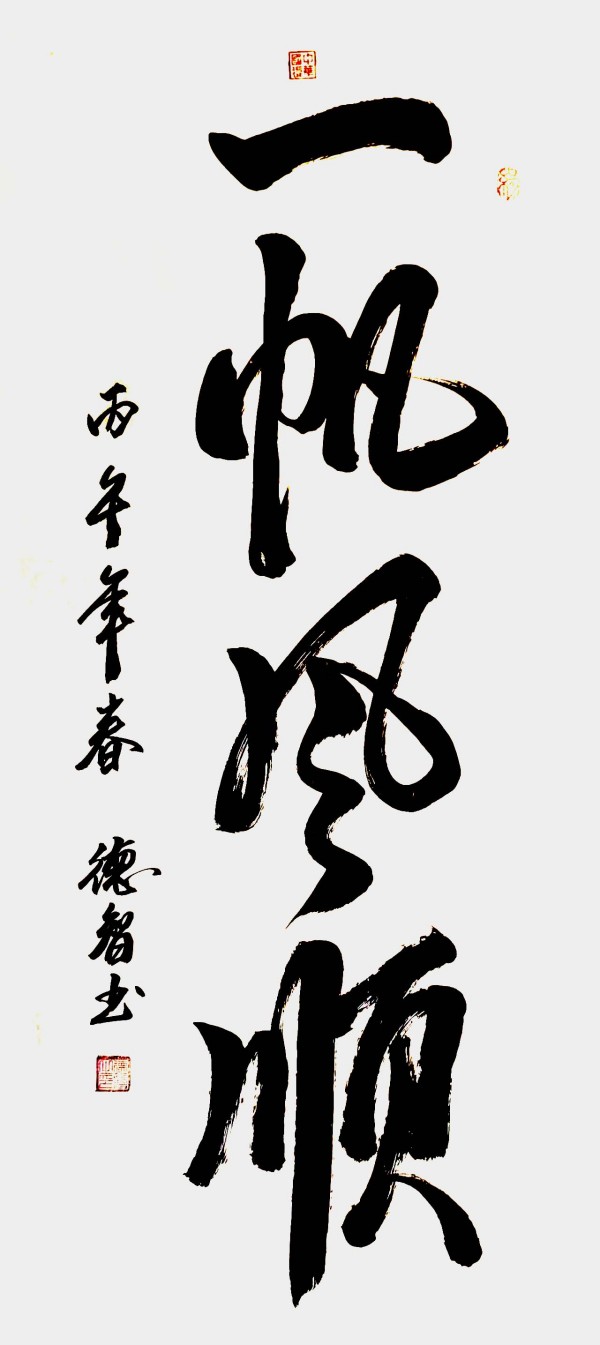 一帆风顺
丙午年春 德智书